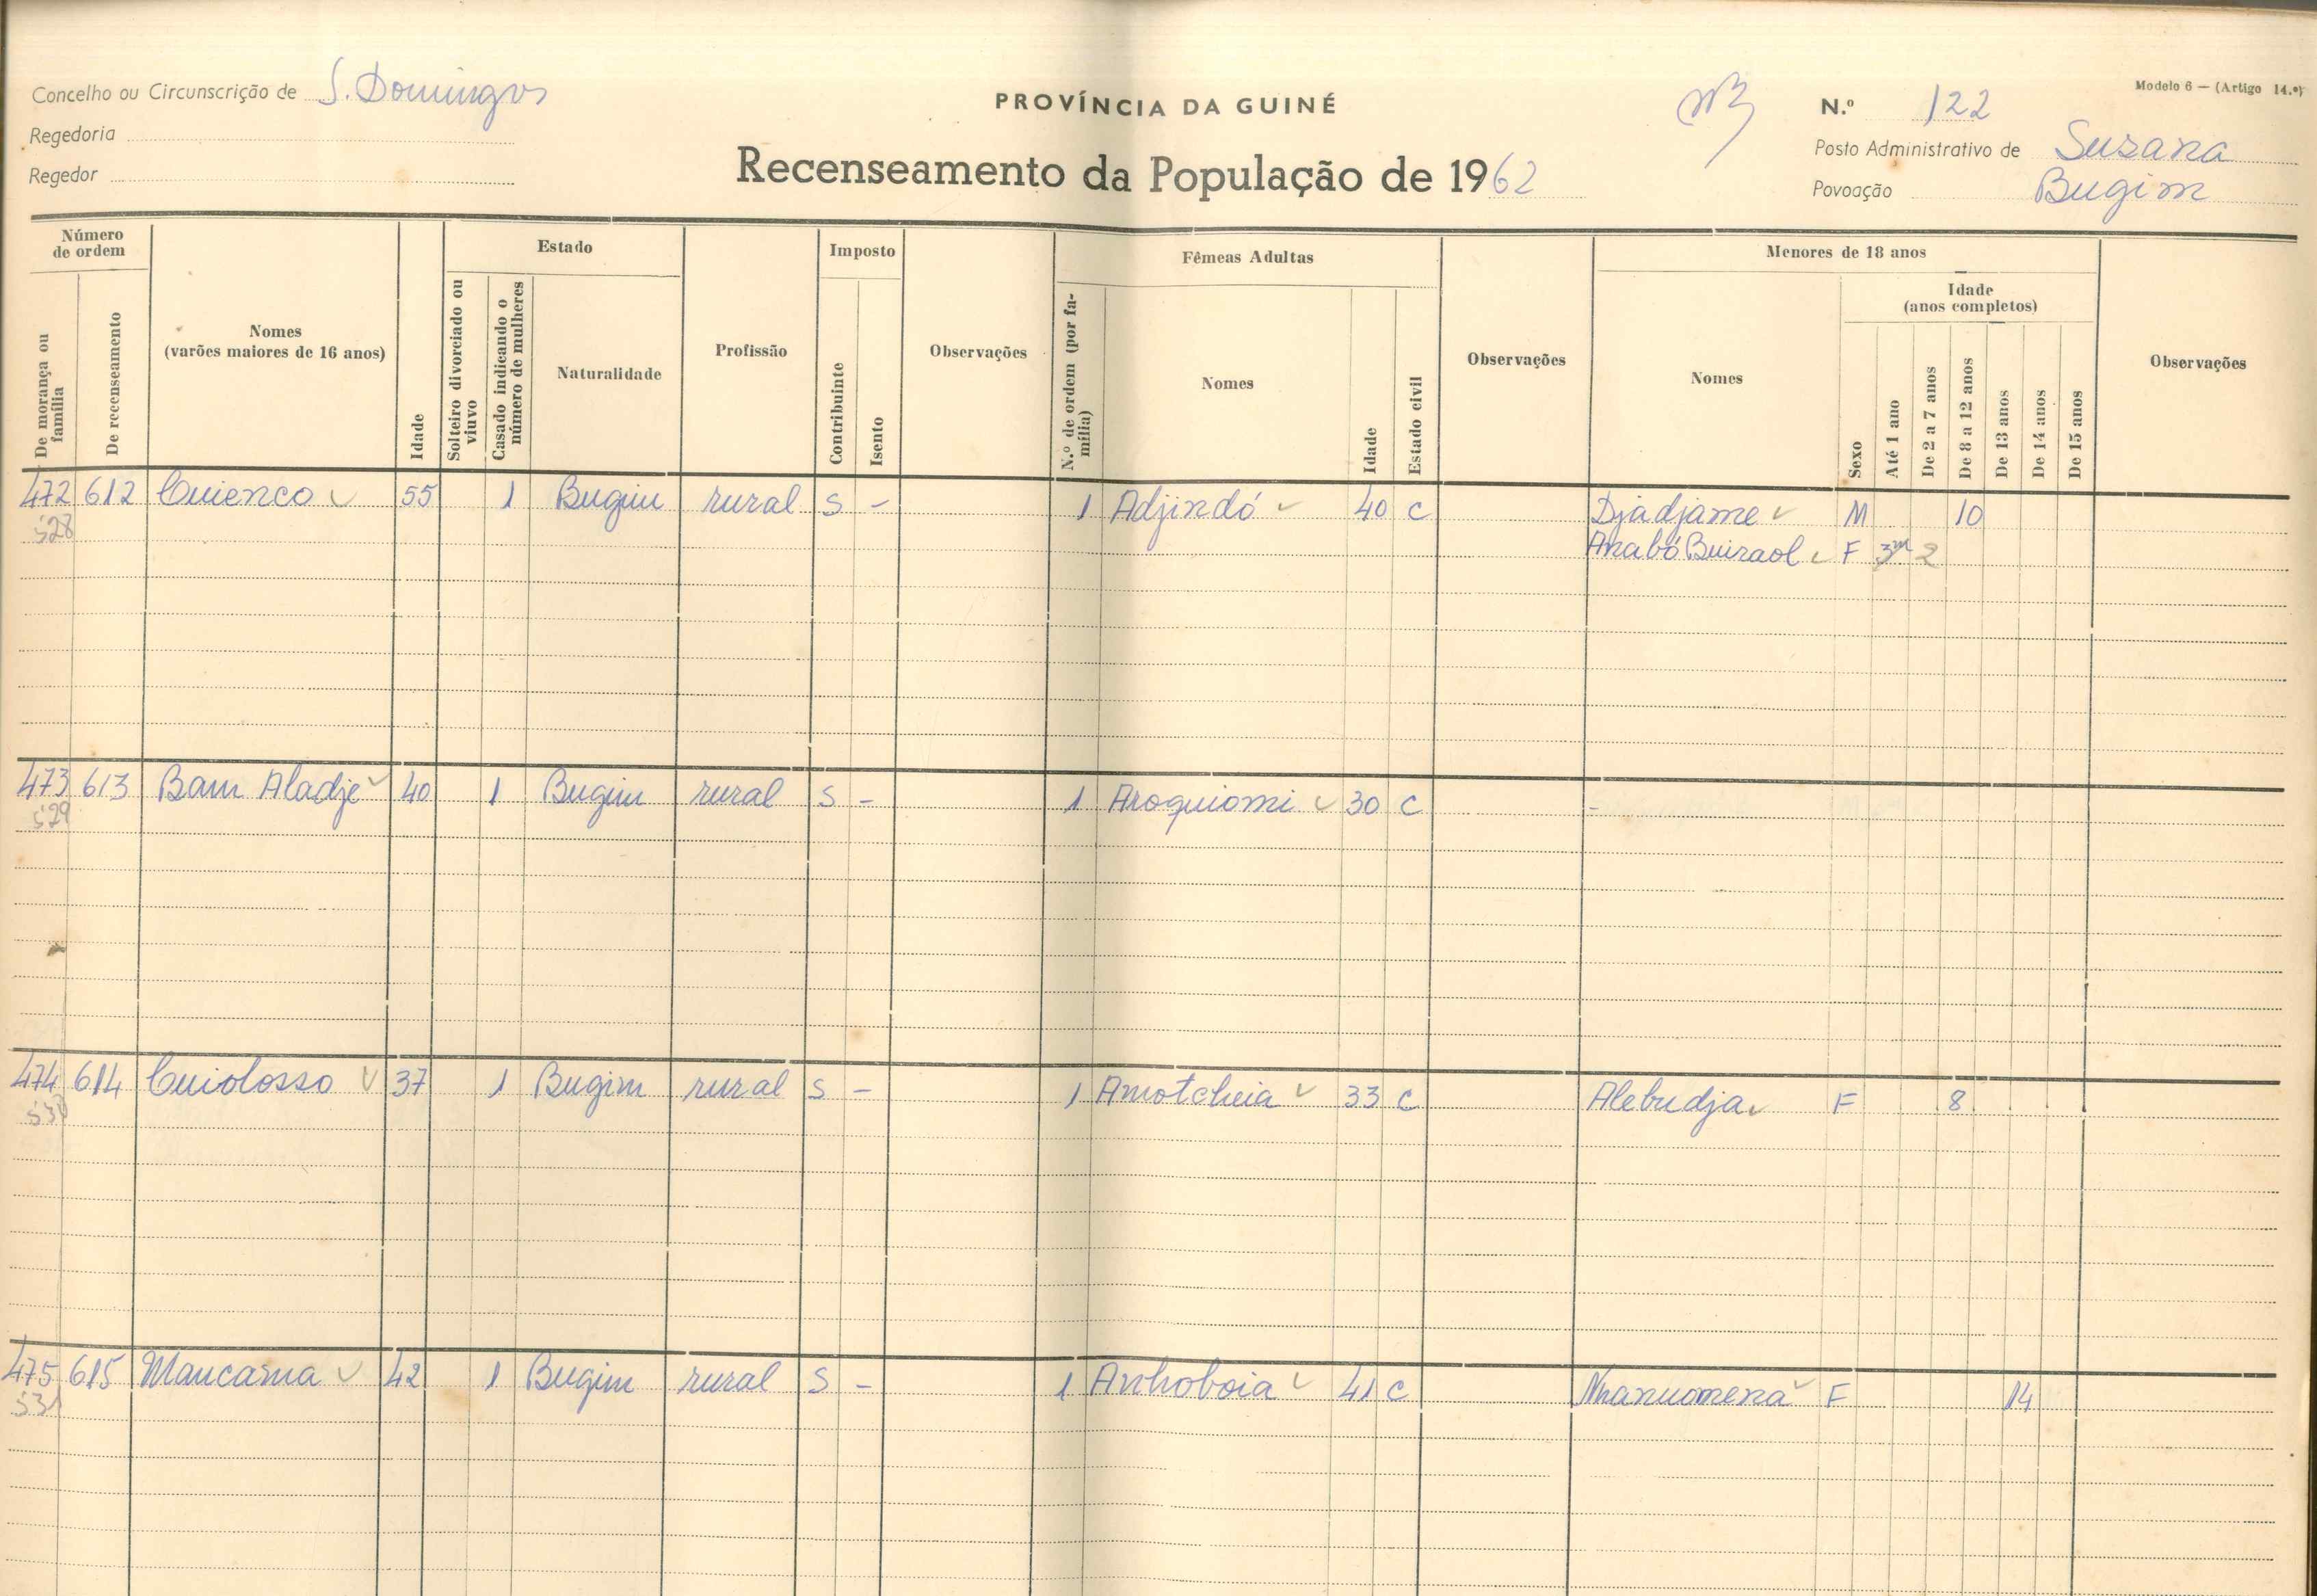 Modelo 6 — (Artigo 14.º)
Concelho ou Circunscrição de S. Domingos
PROVÍNCIA DA GUINÉ
N.º 122
Regedoria
Posto Administrativo de Suzana
Regedor
Recenseamento da População de 1962
Povoação Bugim
Número de ordem
Estado
Imposto
Fêmeas Adultas
Menores de 18 anos
Idade (anos completos)
De morança ou família
De recenseamento
Nomes (varões maiores de 16 anos)
Idade
Solteiro divorciado ou viuvo
Casado indicando o número de mulheres
Naturalidade
Profissão
Contribuinte
Isento
Observações
N.º de ordem (por família)
Nomes
Idade
Estado civil
Observações
Nomes
Sexo
Até 1 ano
De 2 a 7 anos
De 8 a 12 anos
De 13 anos
De 14 anos
De 15 anos
Observações
472 612 Cuienco 55 1 Bugim rural S - 1 Adjindó 40 C Djadjame M 10
528 Anabó Buiraol F 3m 2
473 613 Bam Aladje 40 1 Bugim rural S - 1 Aroquiomi 30 C -
529
474 614 Cuiolosso 37 1 Bugim rural S - 1 Amotcheia 33 C Alebudja F 8
530
475 615 Maucasna 42 1 Bugim rural S - 1 Anhoboia 41 C Nhanuomená F 14
531